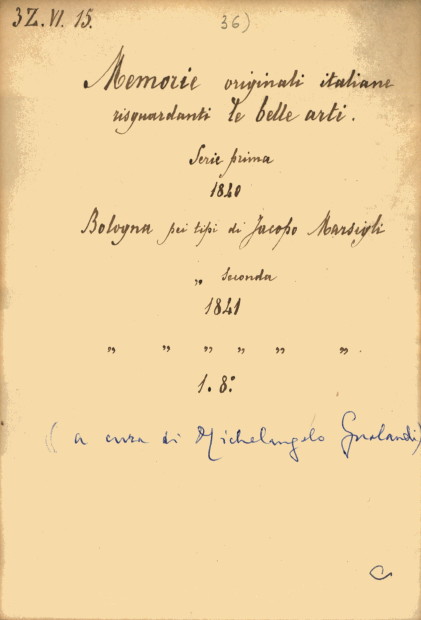 3Z. VI. 15.
36)
Memorie originali italiane
risguardanti le belle arti.
Serie prima
1840
Bologna pei tipi di Jacopo Marsigli
„ seconda
1841
„ „ „ „ „ „
1. 8.º
(a cura di Michelangelo Gualandi)